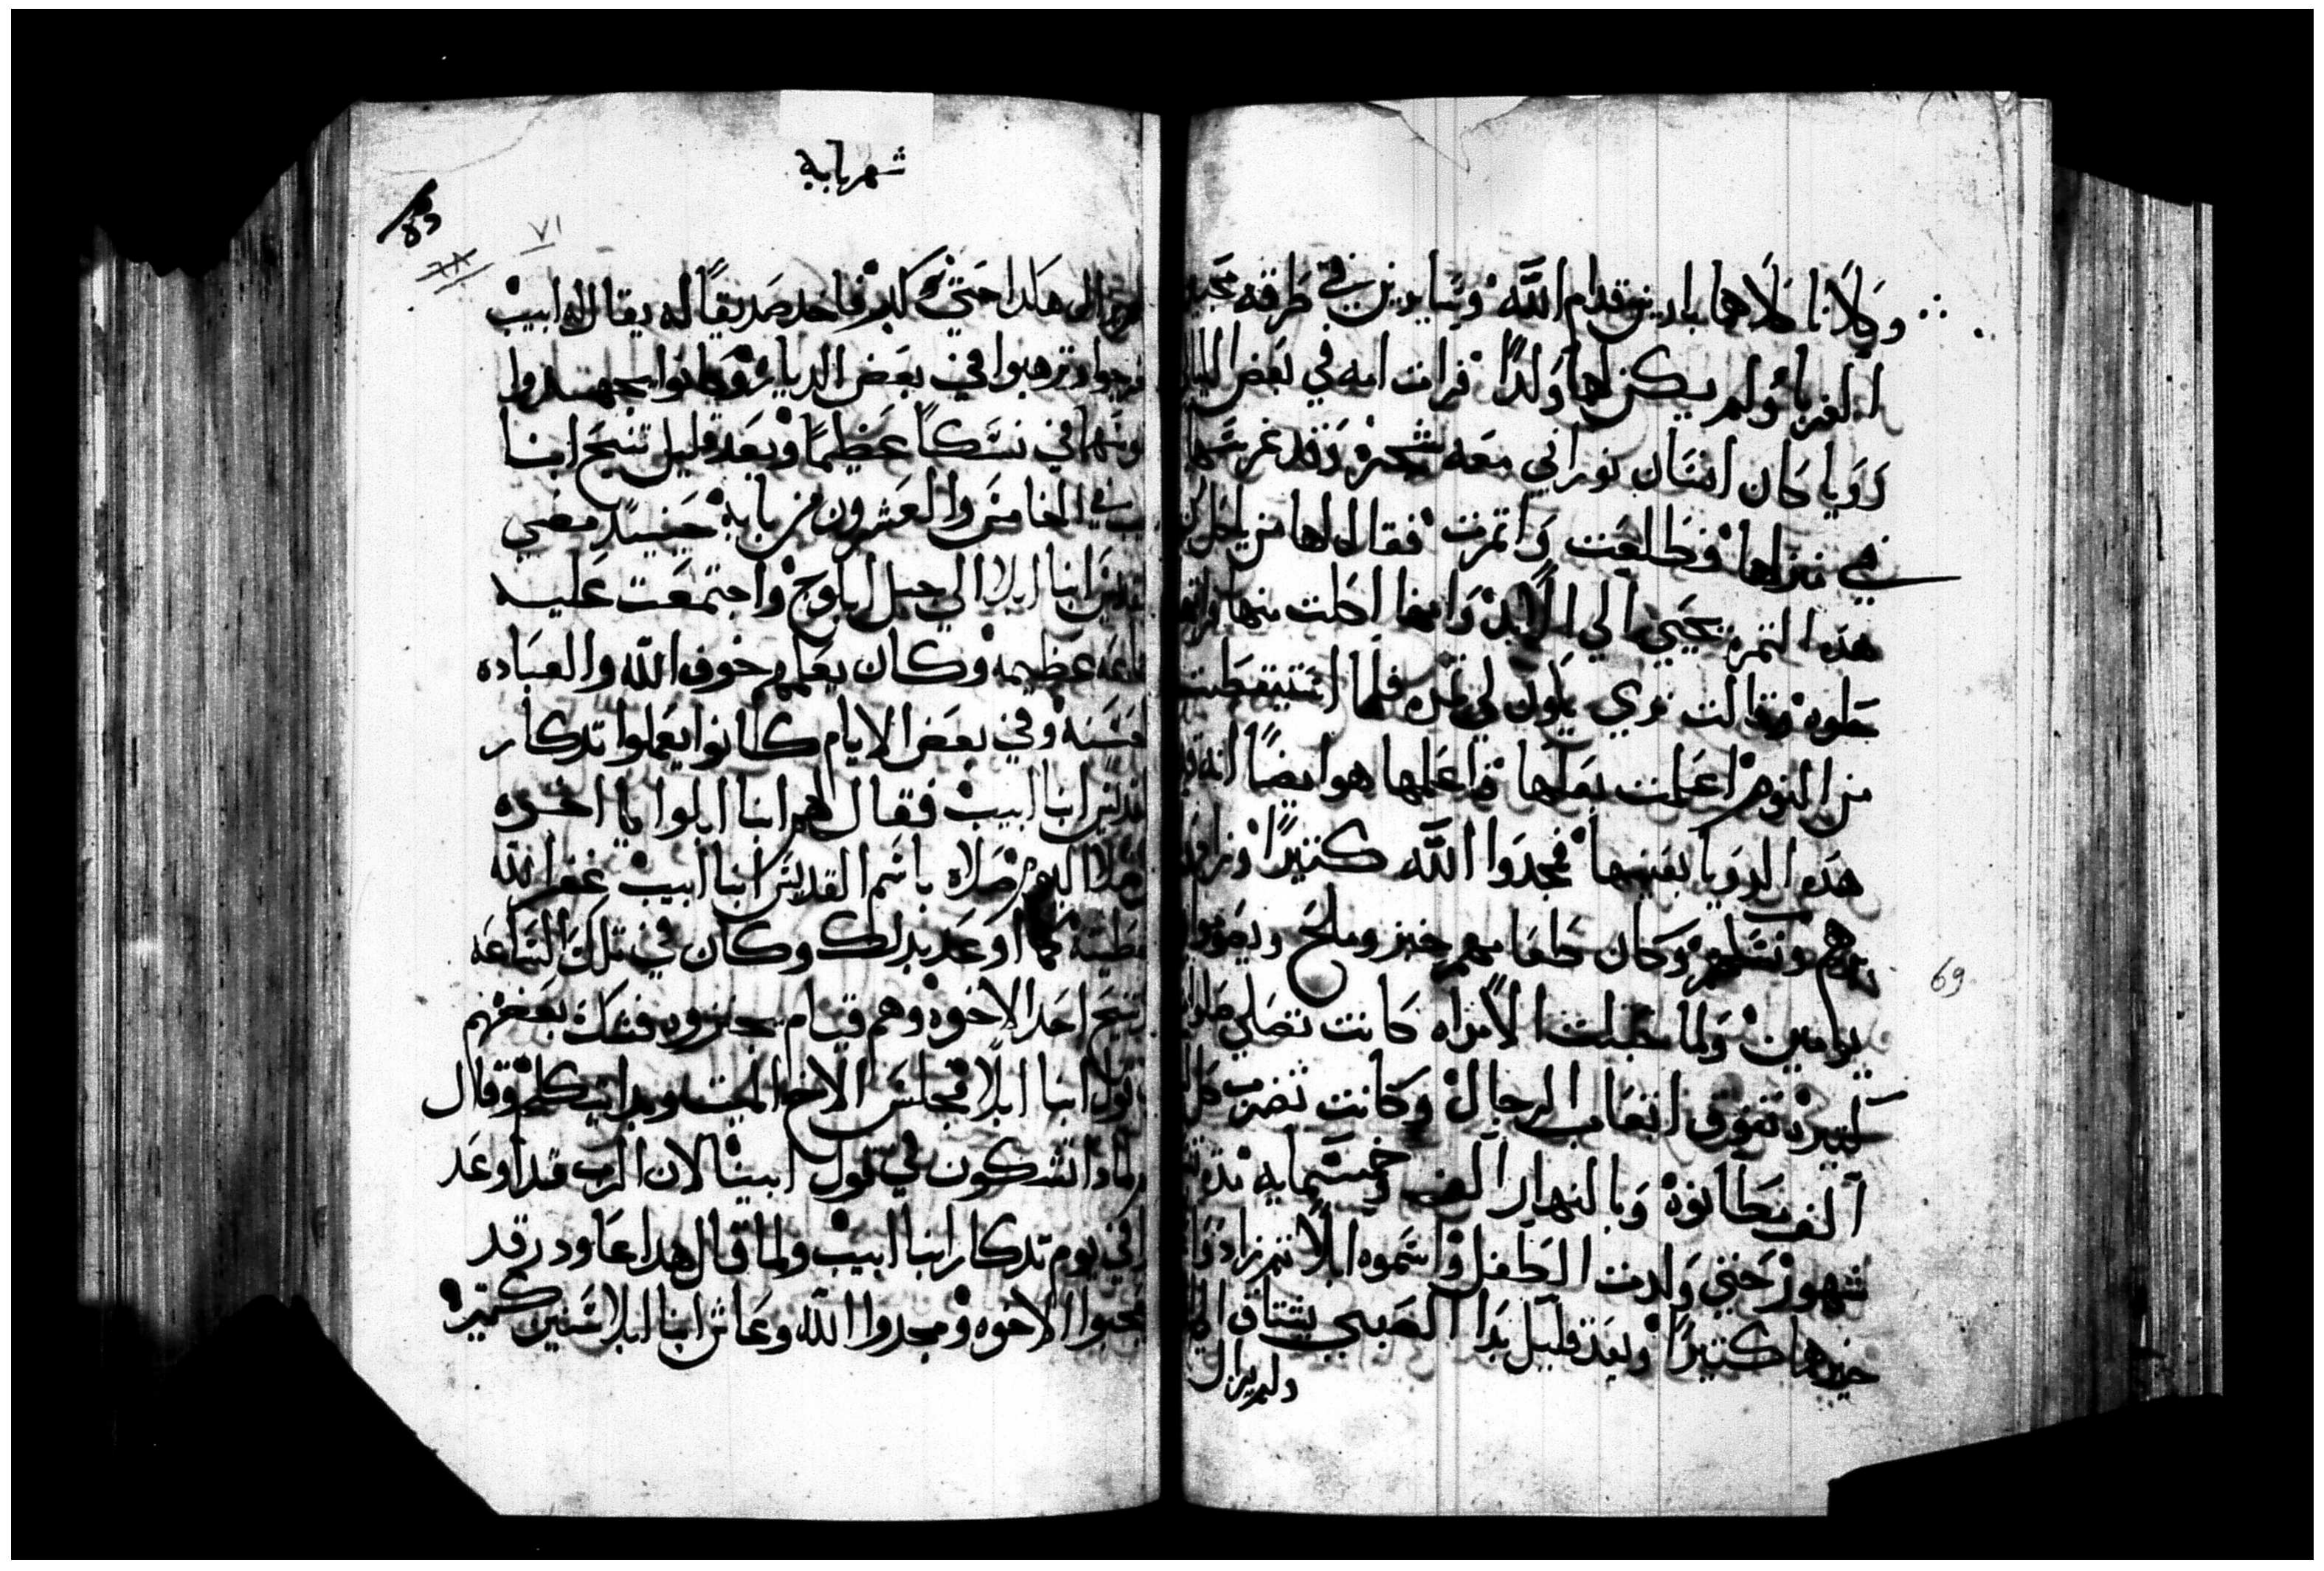 وكلانا كلاهما بارين قدام الله وسايرين في طرقه
الغربا ولم يكن لها ولدًا فرات امه في بعض الليالي
رويا كان انسان نوراني معه شجره وقد غرسها
في منزلها وطلعت واتمرت فقال لها من ياكل من
هذه التمره يحيي الي الابد وانها اكلت منها
حلوه وقالت تري يكون لي تمره فلما استيقظت
من النوم اعلمت بعلها فاعلمها هو ايضًا انه
هذه الرويا بعينها فمجدوا الله كتيرًا
برهم ونسكهم وكان طعامهم خبز وملح ويصوموا
يومين ولما حبلت الامراه كانت تصلي
كتيره تفوق اتعاب الرجال وكانت تضرب كل
الف مطانوه وبالنهار الف وخمسمايه
شهور حتي ولدت الطفل واسموه ابلا تم زادوا
خيرها كتيرًا وبعد قليل بدا الصبي يشتاق
ولم يزال
69
شهر بابه
٧١
٦٨
هكدا حتي كبر فاخد صديقًا له يقال له ابيب
وترهبوا في بعض الديار وكانوا يجهدوا
في نسكًا عظيمًا وبعد قليل تنيح انبا
في الخامس والعشرون من بابه حينيد مضي
انبا ابلا الي جبل ابلوج واجتمعت عليه
عظيمه وكان يعلمهم خوف الله والعباده
وفي بعض الايام كانوا يعملوا تدكار
انبا ابيب فقال لهم انبا ابلوا يا اخوه
اليوم صلاه باسم القديس انبا ابيب غفر الله
كما اوعد بدلك وكان في تلك الساعه
تنيح احد الاخوه وهم قيام يجنزوه فشك بعضهم
قول انبا ابلا فجلس الاخ الميت وبدا يتكلم وقال
لمادا تشكون في قول ابينا لان الرب قد اوعد
في يوم تدكار انبا ابيب ولما قال هدا عاود رقد
الاخوه ومجدوا الله وعاش انبا ابلا سنين كتيره